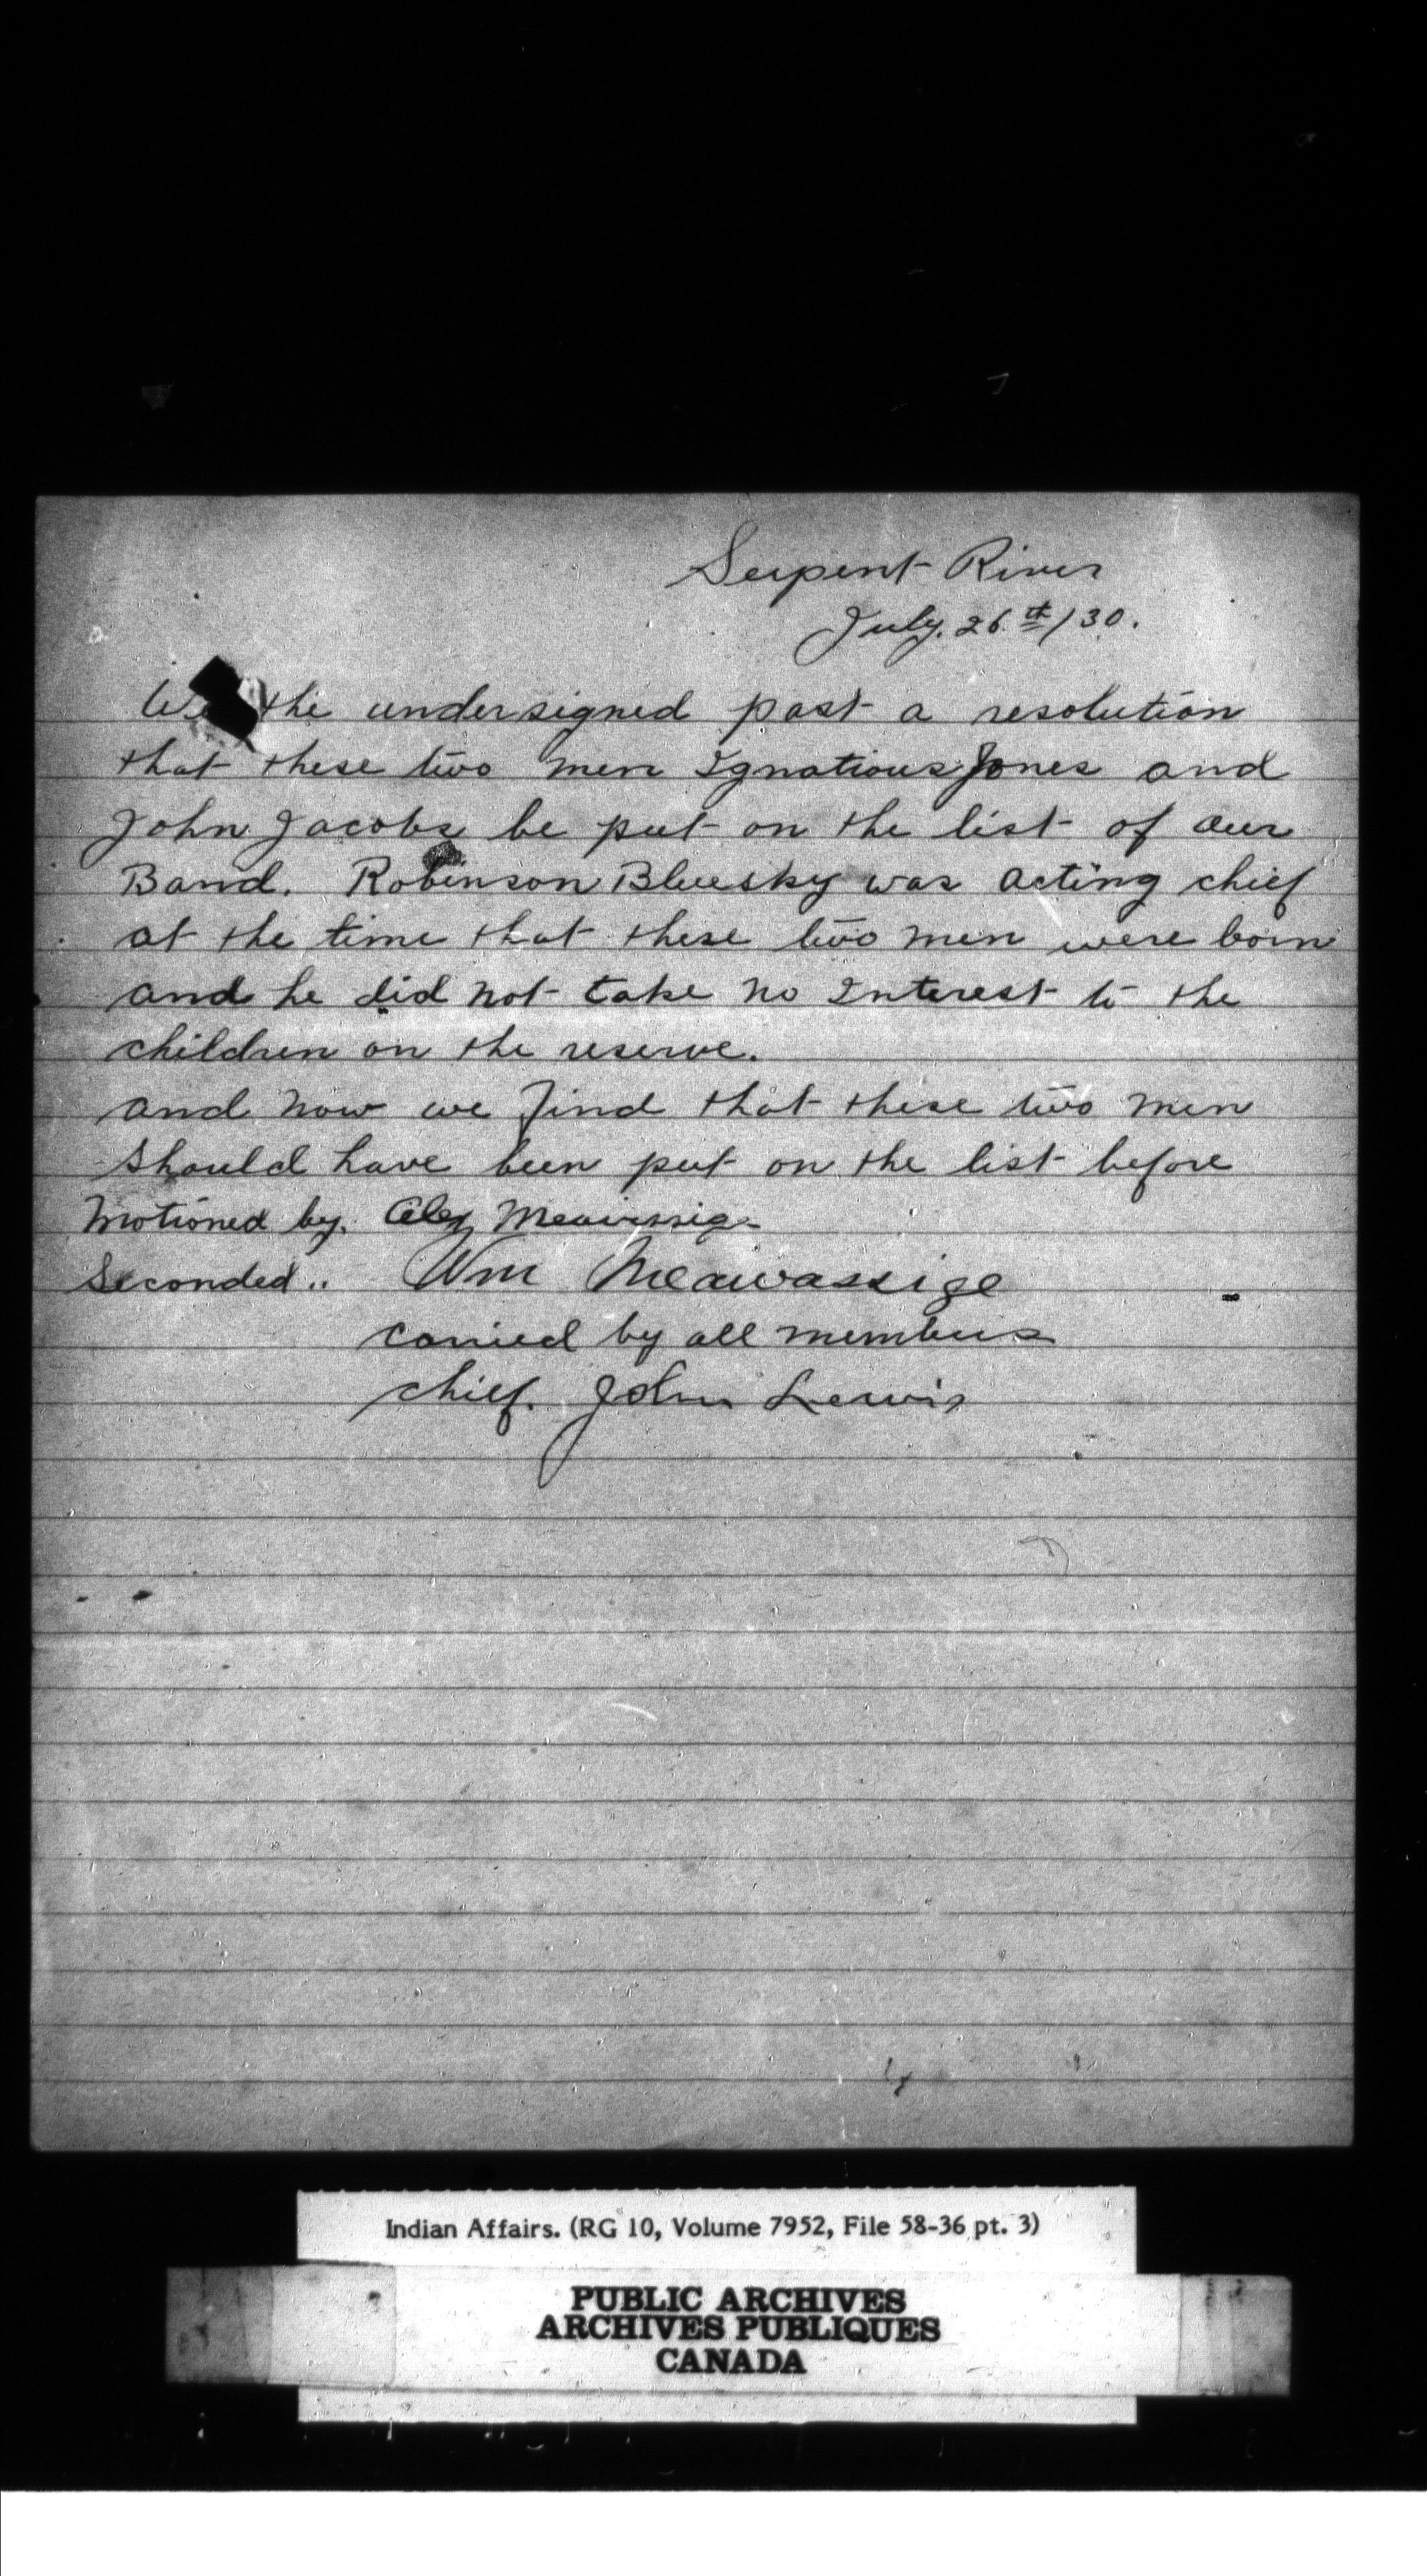 Serpent River
July. 26th/30.
We the undersigned past a resolution
that these two men Ignatious Jones and
John Jacobs be put on the list of our
Band. Robinson Bluesky was acting chief
at the time that these two men were born
and he did not take no Interest to the
children on the reserve.
and now we find that these two men
should have been put on the list before
Motioned by. Alex
Seconded .. Wm Meawassige
carried by all members
chief. John Lewis
Indian Affairs. (RG 10, Volume 7952, File 58-36 pt. 3)
PUBLIC ARCHIVES
ARCHIVES PUBLIQUES
CANADA